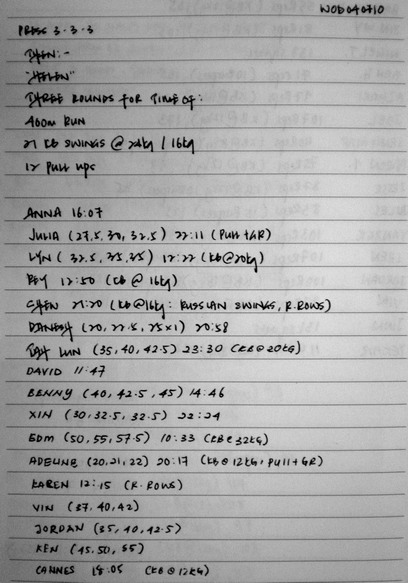 WOD 040710
PRESS 3-3-3
THEN:-
"HELEN"
THREE ROUNDS FOR TIME OF:
400m RUN
21 KB SWINGS @ 24kg / 16kg
12 PULL UPS
ANNA 16:07
JULIA (27.5, 30, 32.5) 22:11 (PULL+GR)
LYN (32.5, 35, 35) 17:27 (KB@20kg)
BEY 12:50 (KB @ 16kg)
SHEN 21:20 (KB@16kg: RUSSIAN SWINGS, R.ROWS)
DANESH (20, 22.5, 25x1) 20:58
TAH LUN (35, 40, 42.5) 23:30 (KB@20KG)
DAVID 11:47
BENNY (40, 42.5, 45) 14:46
XIN (30, 32.5, 32.5) 22:24
EDM (50, 55, 57.5) 10:33 (KB@32KG)
ADELINE (20, 21, 22) 20:17 (KB@12KG, PULL+GR)
KAREN 12:15 (R.ROWS)
VIN (37, 40, 42)
JORDAN (35, 40, 42.5)
KEN (45, 50, 55)
CANNES 18:05 (KB@12KG)